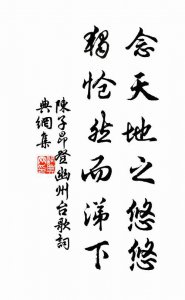 念天地之悠悠
獨愴然而涕下
陳子昂登幽州台歌詞
典網集